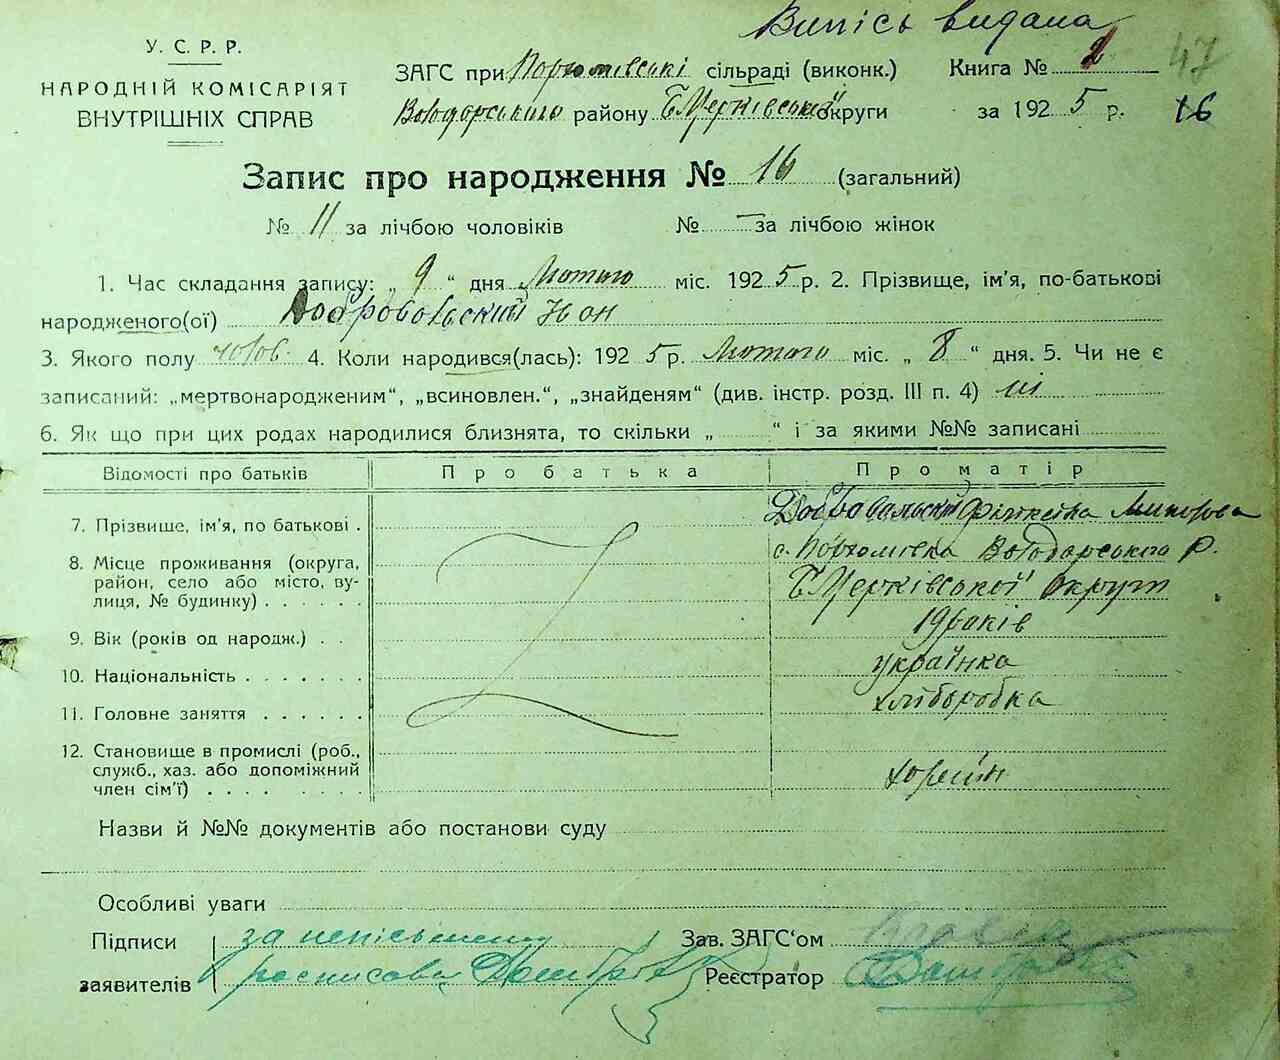 Випісь видана
У. С. Р. Р.
НАРОДНІЙ КОМІСАРІЯТ
ВНУТРІШНІХ СПРАВ
ЗАГС при сільраді (виконк.) Книга № 2 47
Володарського району Б Церківської округи за 1925 р. 16
Запис про народження № 16 (загальний)
№ 11 за лічбою чоловіків № — за лічбою жінок
1. Час складання запису: „ 9 “ дня Лютого міс. 1925 р. 2. Прізвище, ім'я, по-батькові
народженого(ої) Добровольский Іван
3. Якого полу чолов. 4. Коли народився(лась): 1925 р. Лютого міс. „ 8 “ дня. 5. Чи не є
записаний: „мертвонародженим“, „всиновлен.“, „знайденям“ (див. інстр. розд. III п. 4) ні
6. Як що при цих родах народилися близнята, то скільки „ “ і за якими №№ записані
Відомості про батьків Про батька Про матір
7. Прізвище, ім'я, по батькові .
8. Місце проживання (округа, район, село або місто, вулиця, № будинку) . . . . . . с. Володарського р.
Б Церківської округи
9. Вік (років од народж.) . . 19 років
10. Національність . . . . . . . українка
11. Головне заняття . . . . . . хліборобка
12. Становище в промислі (роб., служб., хаз. або допоміжний член сім'ї) . . . .
Назви й №№ документів або постанови суду
Особливі уваги
Підписи за Зав. ЗАГС'ом
заявителів Реєстратор